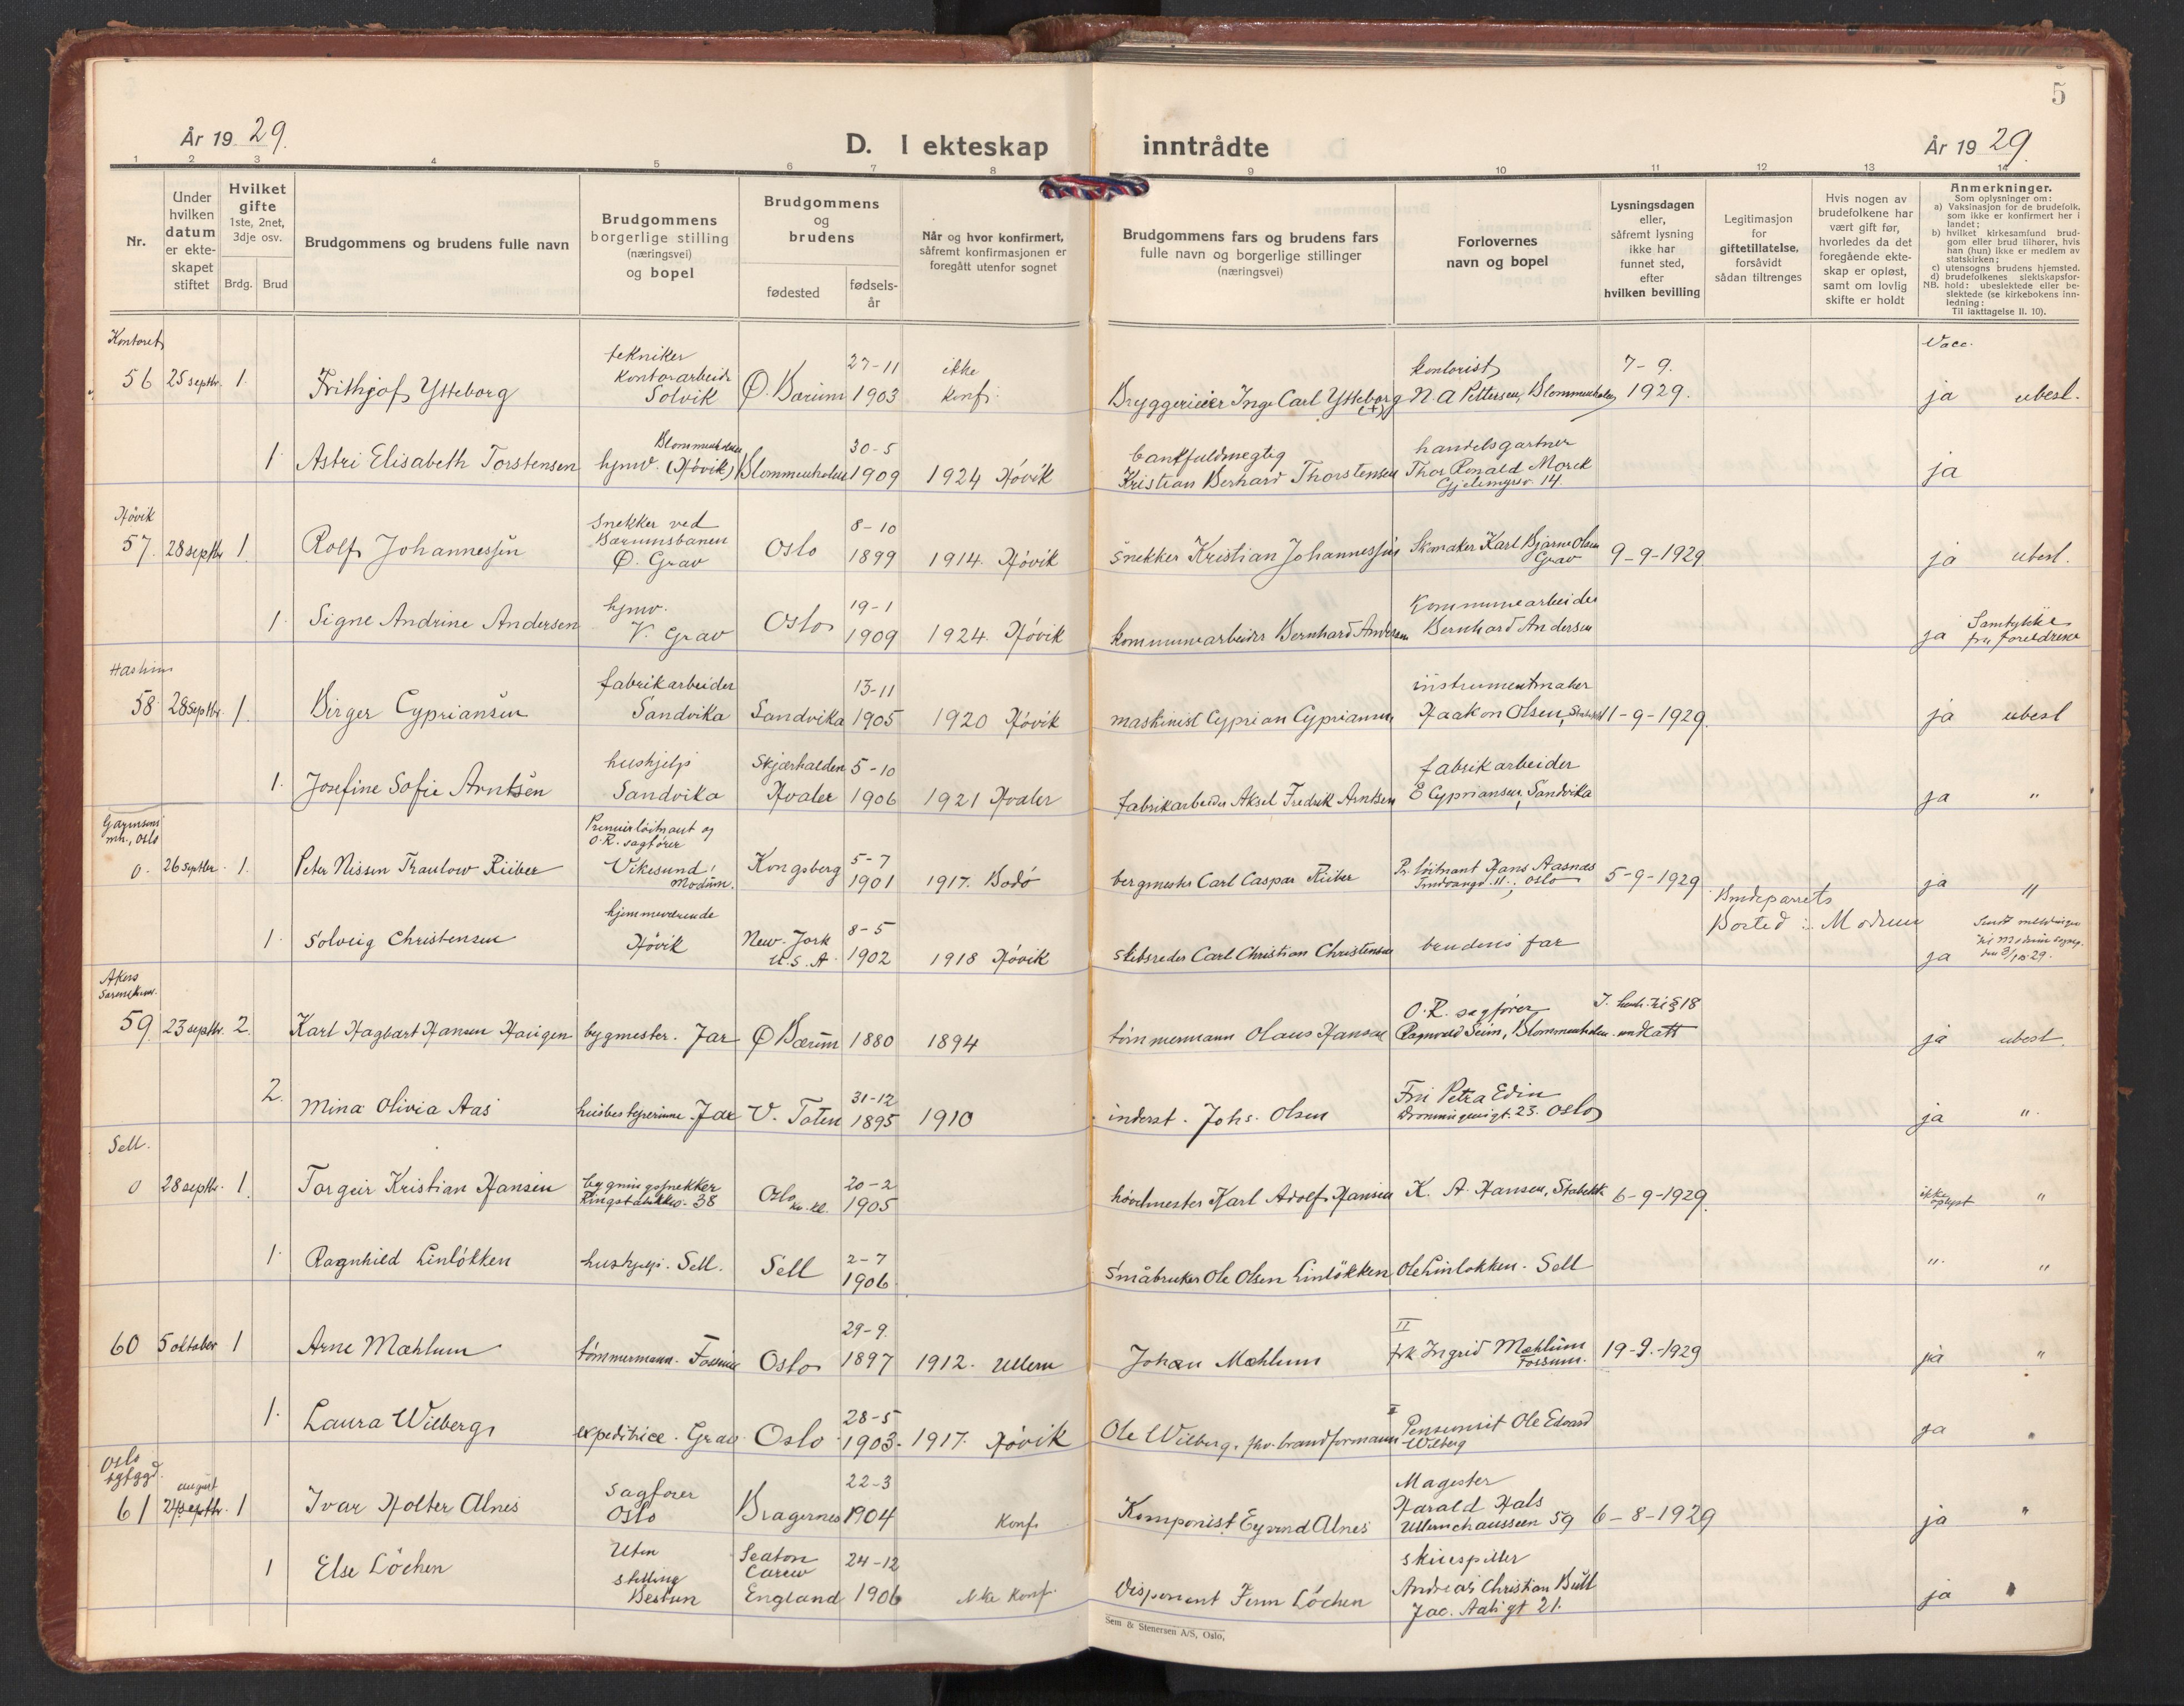 5
År 1929.
D. I ekteskap inntrådte
År 1929.
1 2 3 4 5 6 7 8 9 10 11 12 13 14
Nr.
Under hvilken datum er ekteskapet stiftet
Hvilket gifte 1ste, 2net, 3dje osv.
Brdg. Brud
Brudgommens og brudens fulle navn
Brudgommens borgerlige stilling (næringsvei) og bopel
Brudgommens og brudens
fødested
fødselsår
Når og hvor konfirmert, såfremt konfirmasjonen er foregått utenfor sognet
Brudgommens fars og brudens fars fulle navn og borgerlige stillinger (næringsvei)
Forlovernes navn og bopel
Lysningsdagen eller, såfremt lysning ikke har funnet sted, efter hvilken bevilling
Legitimasjon for giftetillatelse, forsåvidt sådan tiltrenges
Hvis nogen av brudefolkene har vært gift før, hvorledes da det foregående ekteskap er opløst, samt om lovlig skifte er holdt
Anmerkninger.
Som oplysninger om:
a) Vaksinasjon for de brudefolk. som ikke er konfirmert her i landet;
b) hvilket kirkesamfund brudgom eller brud tilhører, hvis han (hun) ikke er medlem av statskirken;
c) utensogns brudens hjemsted.
d) brudefolkenes slektskapsforhold: ubeslektede eller beslektede (se kirkebokens innledning:
NB.
Til iakttagelse II. 10).
Kontoret
Vacc.
56 25 septbr. 1. Frithjof Ytteborg tekniker kontorarbeide Solvik Ø. Bærum 27-11 1903 ikke konf. Bryggerieier Inge Carl Ytteborg (+) kontorist N. A Pettersen, Blommenholm 7-9. 1929. ja ubesl.
1 Astri Elisabeth Torstensen hjmv. Blommenholm (Høvik) Blommenholm 30-5 1909 1924 Høvik bankfuldmegtig Kristian Berhard Thorstensen handelsgartner Thor Ronald Morck 14. ja
Høvik
57. 28 septbr 1. Rolf Johannessen Snekker ved Bærumsbanen Ø. Grav Oslo 8-10 1899 1914. Høvik Snekker Kristian Johannessen Skomaker Karl Bjarne Olsen Grav 9-9-1929 ja ubesl.
1. Signe Andrine Andersen hjmv. V. Grav Oslo 19-1 1909 1924. Høvik kommunearbeider Bernhard Andersen Kommunearbeider Bernhard Andersen ja Samtykke fra foreldrene
Haslum
58 28 septbr. 1. Birger Cypriansen fabrikarbeider Sandvika Sandvika 13-11 1905 1920 Høvik maskinist Cyprian Cypriansen instrumentmaker Haakon Olsen, 11-9-1929. ja ubesl
1. Josefine Sofie Arntsen hushjelp Sandvika Skjærhalden Hvaler 5-10 1906 1921 Hvaler fabrikarbeider Aksel Fredrik Arntsen fabrikarbeider E Cypriansen, Sandvika ja "
mh., Oslo
0. 26 septbr. 1. Peter Nissen Thaulow Riiber Premierløitnant og O.R. sagfører Vikesund, Modum. Kongsberg 5-7 1901 1917. Bodø bergmester Carl Caspar Riiber Pr. løitnant Hans Aasnæs 11, Oslo 5-9-1929 ja "
1. Solveig Christensen hjemmeværende Høvik New-Jork U.S.A. 8-5 1902 1918 Høvik skibsreder Carl Christian Christensen brudens far Brudeparrets Bosted: Modum ja Sendt meldinger til Modum sognep. den 3/10 29.
Akers
59. 23 septbr. 2. Karl Hagbart Hansen Haugen bygmester. Jar Ø Bærum 1880 1894 tømmermann Olaus Hansen O.R. sagfører Ragnvald Seim, Blommenholm. § 18 ja ubesl.
2. Mina Olivia Aas husbestyrerinne. Jar V. Toten 31-12 1895 1910 inderst. Johs. Olsen Fru Petra Edin Dronningensgt. 23. Oslo ja "
Sell.
0 28 septbr. 1. Torgeir Kristian Hansen bygningssnekker Ringstabekkv. 38 Oslo 20-2 1905 Karl Adolf Hansen K. A. Hansen, Stabekk 6-9-1929. ikke oplyst "
1. Ragnhild Linløkken hushjelp. Sell. Sell 2-7 1906 Småbruker Ole Olsen Linløkken Ole Linløkken. Sell " "
60 5 oktober 1 Arne Mæhlum tømmermann. Fossum Oslo 29-9. 1897 1912. Ullern Johan Mæhlum II frk Ingrid Mæhlum Fossum. 19-9.-1929 ja "
1. Laura Wilberg expeditrice. Grav Oslo 28-5 1903. 1917. Høvik Ole Wilberg, fhv. brandformann Pensionist Ole Edvard Wilberg ja "
Oslo
61 24 septbr. august 1 Ivar Holter Alnes Sagfører Oslo Bragernes 22-3 1904 Konf. Komponist Eyvind Alnes Magister Harald Hals Ullernchausseen 59 6-8-1929 ja "
1 Else Löchen Uten stilling Bestun Seaton Carew England 24-12 1906 ikke konf. Disponent Finn Löchen skuespiller Andreas Christian Bull Jac. Aalsgt 21. ja "
Sem & Stenersen A/S, Oslo,